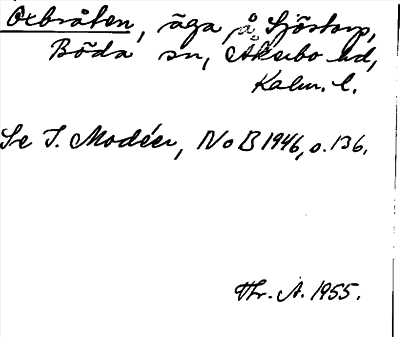 Oxbråten, äga på Sjöstorp,
Böda sn, Åkerbo hd,
Kalm. l.
Se I. Modéer, NoB 1946, s. 136.
Thr. A. 1955.